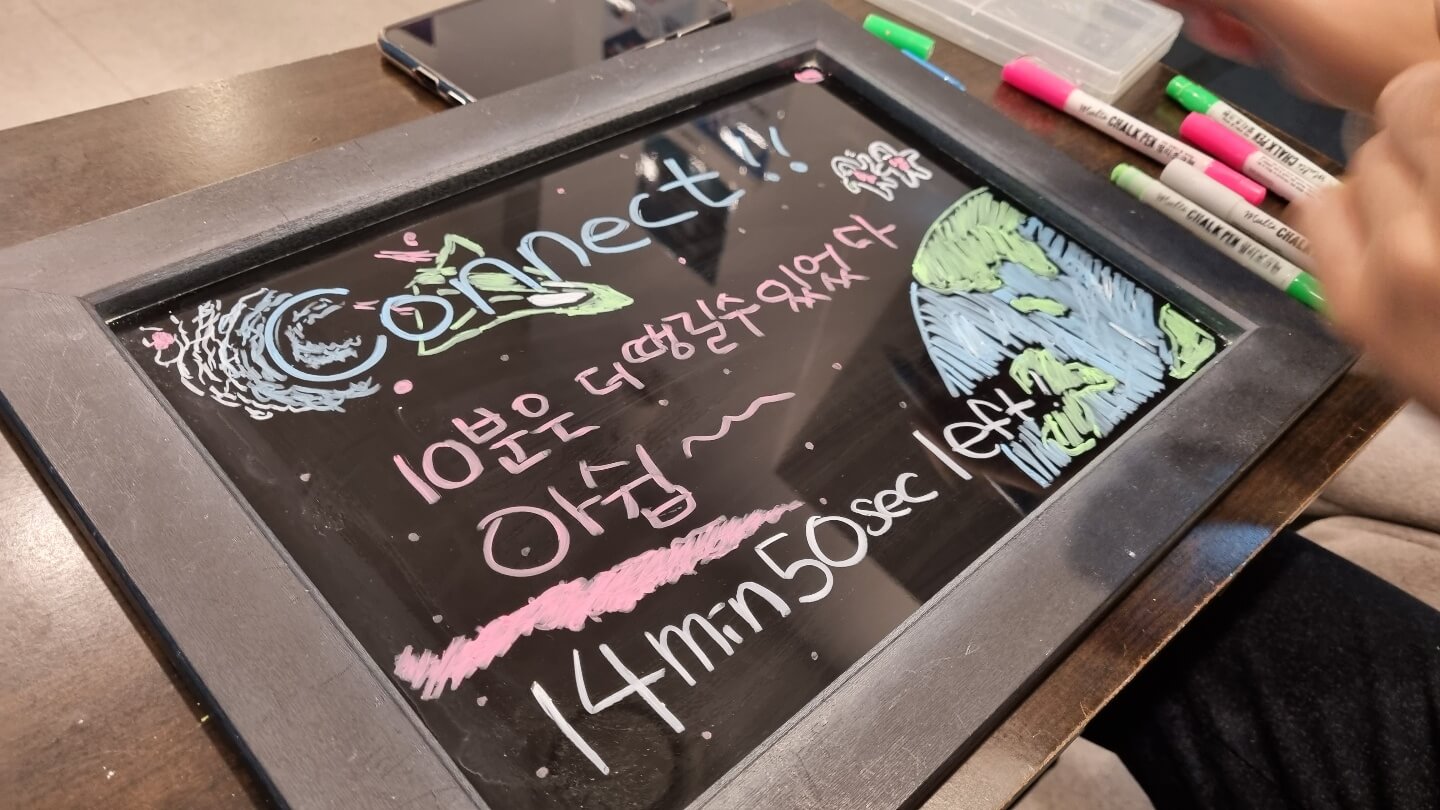 Connect!!
10분은 더 땡길수 있었다
아쉽
14min 50sec left!
CHALK PEN
CHALK PEN
CHALK PEN
CHALK